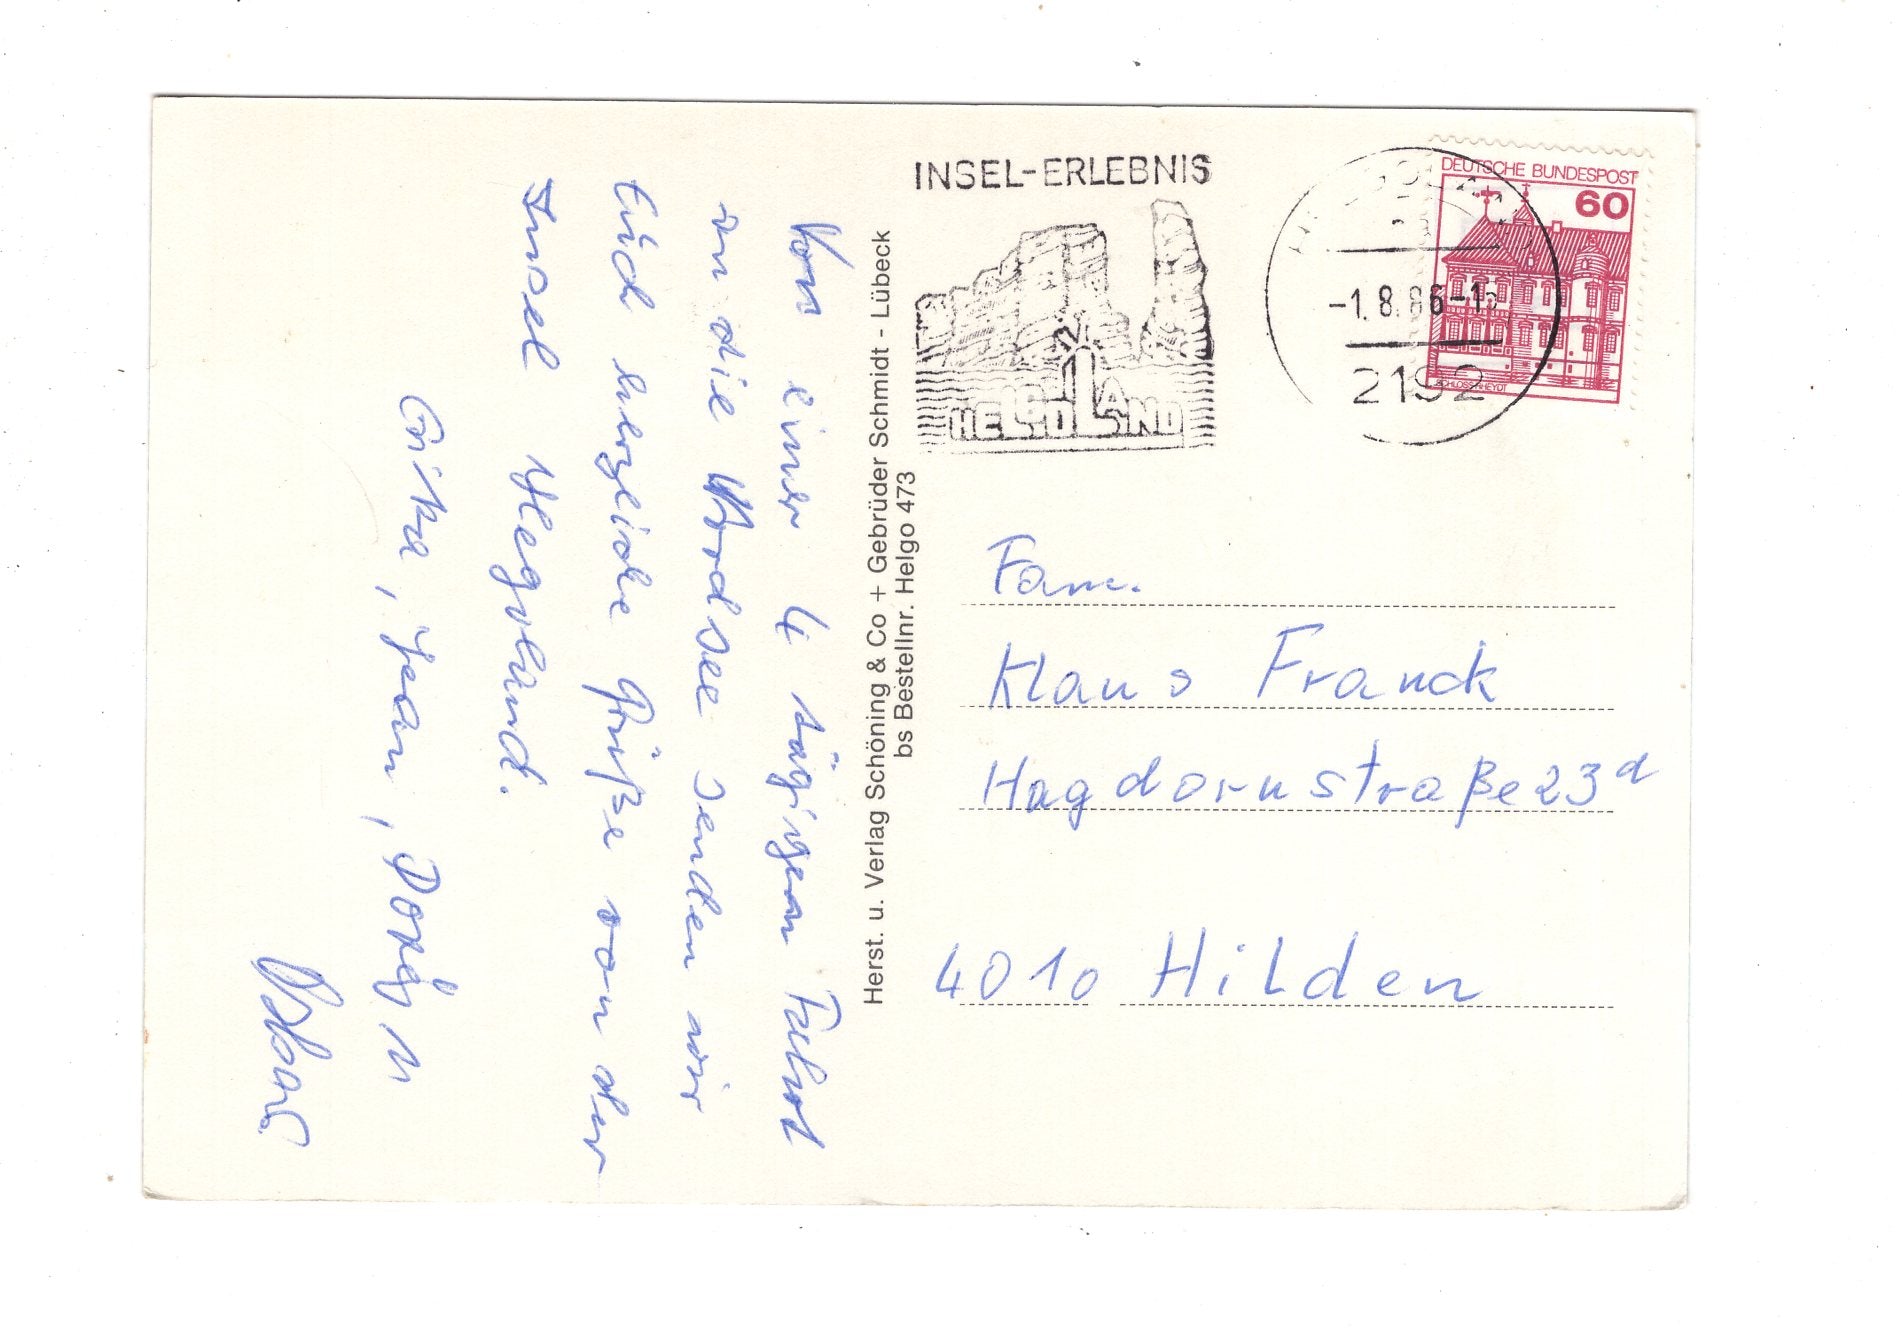 Von einer 4 tägigen Fahrt
an die Nordsee senden wir
Euch herzliche Grüße von der
Insel Helgoland.
Erika, Jean, Doris u
Herst. u. Verlag Schöning & Co + Gebrüder Schmidt - Lübeck
bs Bestellnr. Helgo 473
INSEL-ERLEBNIS
HELGOLAND
-1.8.86-1
2192
DEUTSCHE BUNDESPOST
60
SCHLOSS RHEYDT
Fam.
Klaus Franck
Hagdornstraße 23 d
4010 Hilden